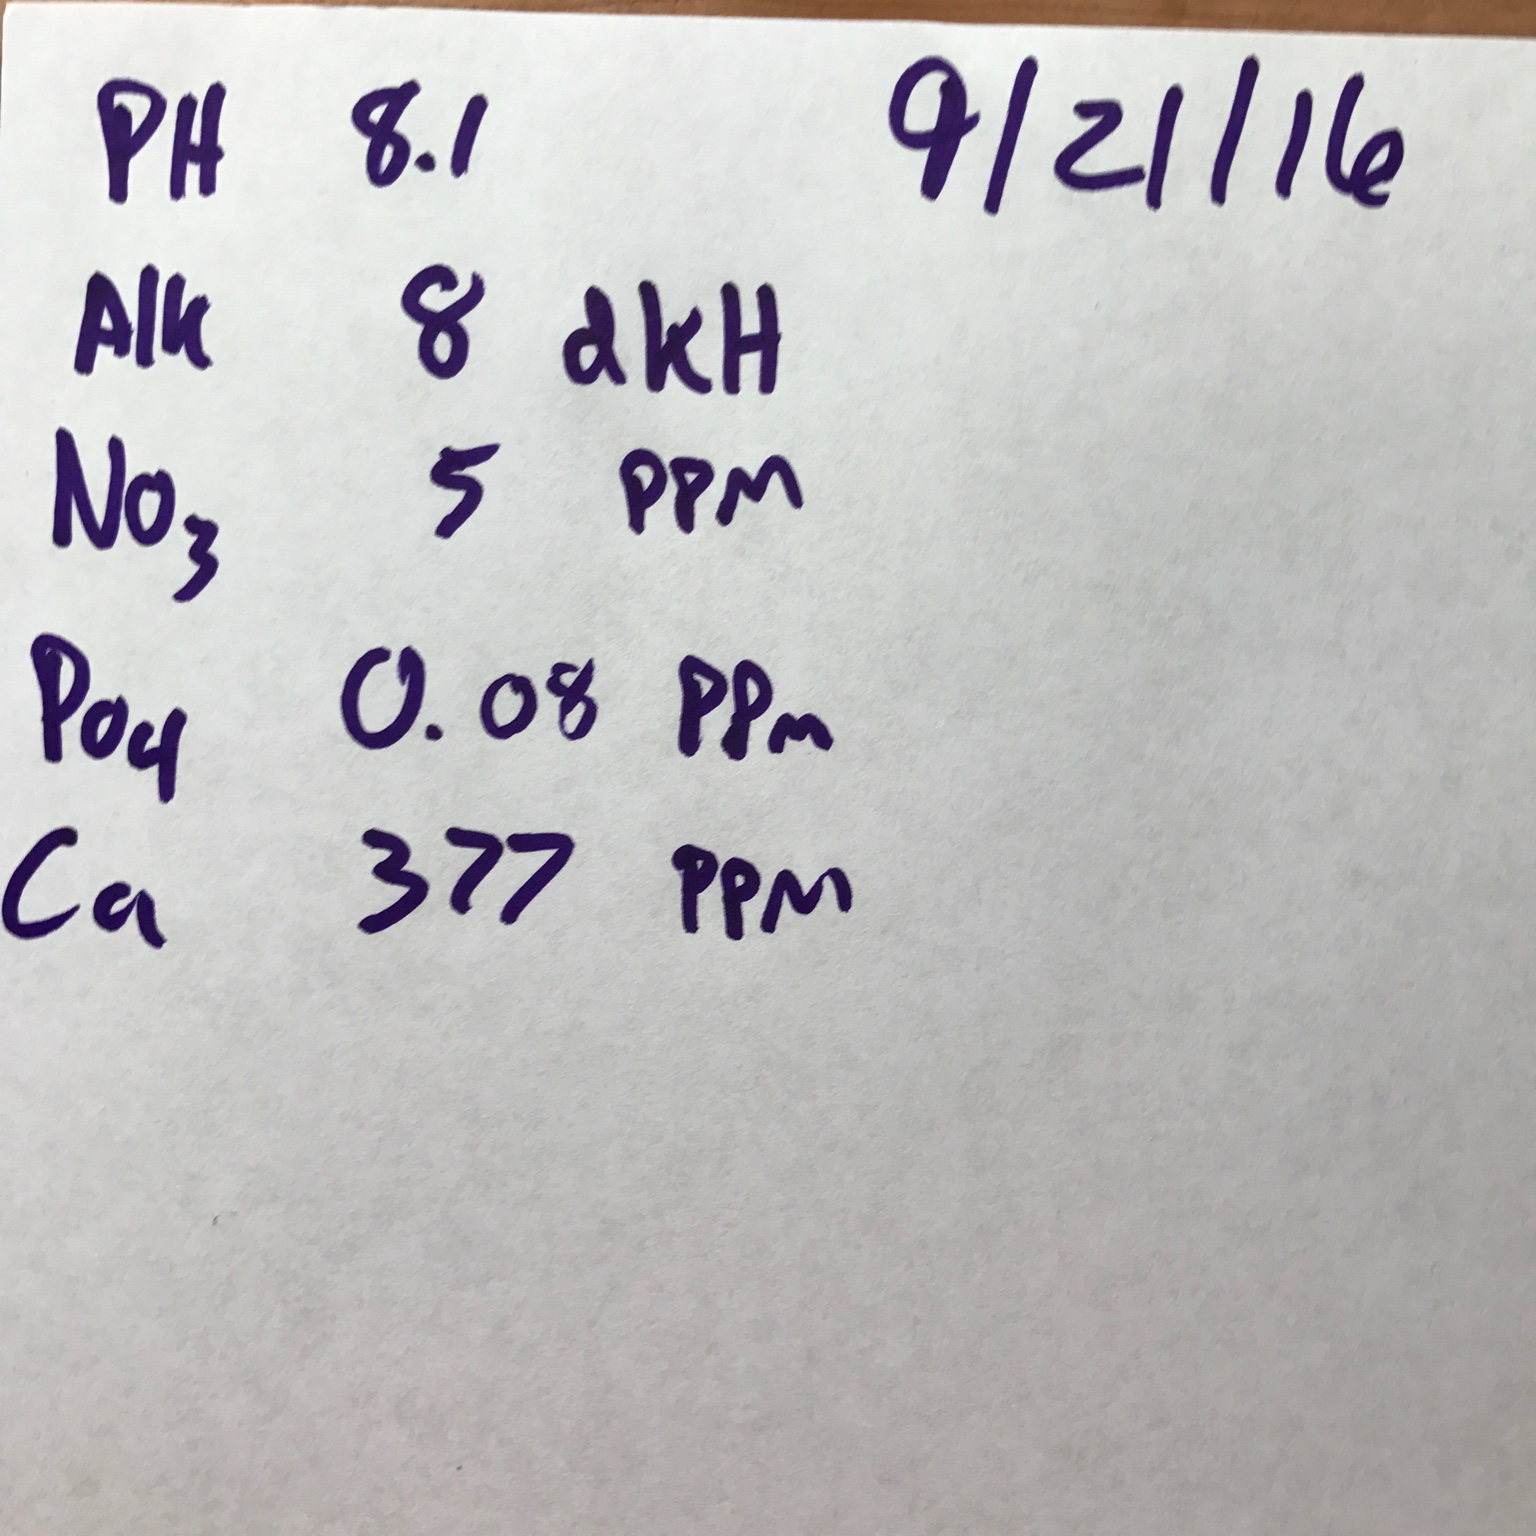 PH 8.1 9/21/16
Alk 8 dkH
No3 5 PPM
Po4 0.08 PPm
Ca 377 PPM